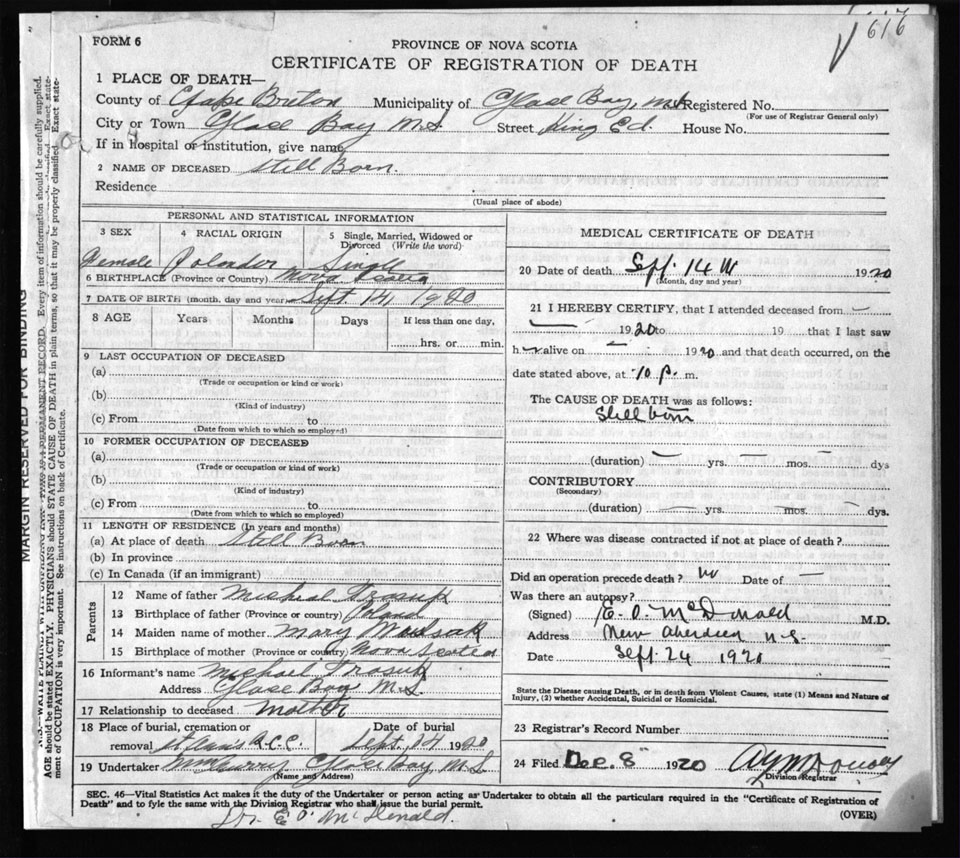 616
FORM 6
PROVINCE OF NOVA SCOTIA
CERTIFICATE OF REGISTRATION OF DEATH
1 PLACE OF DEATH—
County of Cape Breton Municipality of Glace Bay, N.S. Registered No.
(For use of Registrar General only)
City or Town Glace Bay N.S. Street King Ed. House No.
If in Hospital or Institution, give name
2 NAME OF DECEASED Still Born.
Residence
(Usual place of abode)
PERSONAL AND STATISTICAL INFORMATION
3 SEX 4 RACIAL ORIGIN 5 Single, Married, Widowed or Divorced (Write the word)
Female Polander Single
6 BIRTHPLACE (Province or Country) Nova Scotia
7 DATE OF BIRTH (month, day and year) Sept 14, 1920
8 AGE Years Months Days If less than one day,
hrs. or min.
9 LAST OCCUPATION OF DECEASED
(a)
(Trade or occupation or kind or work)
(b)
(Kind of industry)
(c) From to
(Date from which to which so employed)
10 FORMER OCCUPATION OF DECEASED
(a)
(Trade or occupation or kind of work)
(b)
(Kind of industry)
(c) From to
(Date from which to which so employed)
11 LENGTH OF RESIDENCE (In years and months)
(a) At place of death Still Born
(b) In province
(c) In Canada (if an immigrant)
Parents
12 Name of father Micheal
13 Birthplace of father (Province or country) Poland
14 Maiden name of mother Mary
15 Birthplace of mother (Province or country) Nova Scotia
16 Informant's name Michael
Address Glace Bay N.S.
17 Relationship to deceased Mother
18 Place of burial, cremation or Date of burial
removal R.C.C. Sept. 14 1920
19 Undertaker Curry Glace Bay N.S.
(Name and Address)
MEDICAL CERTIFICATE OF DEATH
20 Date of death Sept. 14 th 1920
(Month, day and year)
21 I HEREBY CERTIFY, that I attended deceased from —
— 1920 to 19 that I last saw
h— alive on — 1920 and that death occurred, on the
date stated above, at 10 p. m.
The CAUSE OF DEATH was as follows:
Still born
(duration) — yrs. — mos. — dys
CONTRIBUTORY
(Secondary)
(duration) — yrs. — mos. — dys.
22 Where was disease contracted if not at place of death?
Did an operation precede death? No Date of —
Was there an autopsy?
(Signed) E. O. McDonald M.D.
Address New Aberdeen N.S.
Date Sept. 24 1920
State the Disease causing Death, or in death from Violent Causes, state (1) Means and Nature of
Injury, (2) whether Accidental, Suicidal or Homicidal.
23 Registrar's Record Number
24 Filed Dec. 8 1920
Division Registrar
SEC. 46—Vital Statistics Act makes it the duty of the Undertaker or person acting as Undertaker to obtain all the particulars required in the "Certificate of Registration of
Death" and to fyle the same with the Division Registrar who shall issue the burial permit. (OVER)
Dr. E. O. McDonald.
MARGIN RESERVED FOR BINDING
Every item of information should be carefully supplied.
AGE should be stated EXACTLY. PHYSICIANS should STATE CAUSE OF DEATH in plain terms, so that it may be properly classified. Exact state-
ment of OCCUPATION is very important. See instructions on back of Certificate.